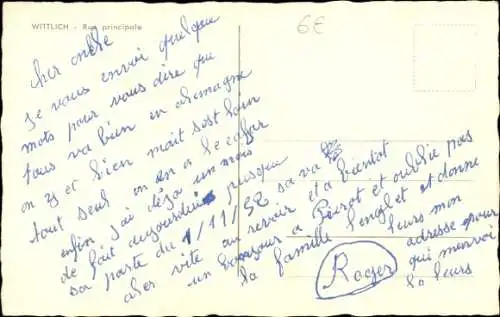 WITTLICH - Rue principale
6€
cher oncle
je vous envoi quelque
mots pour vous dire que
tous va bien en alemagne
on est bien mait sest loin
tout seul on en a le cafar
enfin j'ai déja un mois
de fait aujourdui puisque
sa parte du 1/11/52 sa va
ales vite au revoir et a bientot
un bonjour a Pierot et oublie pas
la famille Lenglet et donne
leurs mon
adresse pour
qui m'envoi
la leurs
Roger